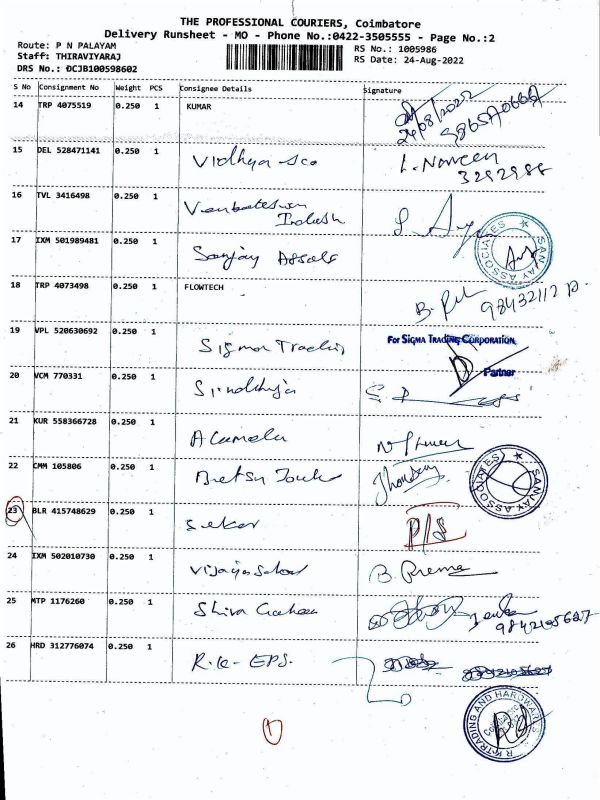 THE PROFESSIONAL COURIERS, Coimbatore
Delivery Runsheet - MO - Phone No.:0422-3505555 - Page No.:2
Route: P N PALAYAM
RS No.: 1005986
Staff: THIRAVIYARAJ
RS Date: 24-Aug-2022
DRS No.: DCJB100598602
S No Consignment No Weight PCS Consignee Details Signature
14 TRP 4075519 0.250 1 KUMAR
24/08/2022
15 DEL 528471141 0.250 1 Vidhya Sco L. Naveen
3292988
16 TVL 3416498 0.250 1 Venkateswara
17 IXM 501989481 0.250 1 Sanjay Assots
SANJAY ASSOCIATES
18 TRP 4073498 0.250 1 FLOWTECH
19 VPL 520630692 0.250 1 Sigma Tradin
For SIGMA TRADING CORPORATION
Partner
20 VCM 770331 0.250 1 Sindhuja
21 KUR 558366728 0.250 1
22 CMM 105806 0.250 1
SANJAY ASSOCIATES
23 BLR 415748629 0.250 1 Sekar P/S
24 IXM 502010730 0.250 1 B. Prema
25 MTP 1176260 0.250 1 Shiva
9842105627
26 HRD 312776074 0.250 1 R.K-EPS.
R K TRADING AND HARDWARES
1